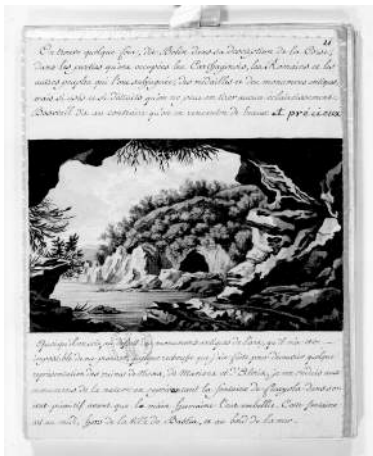 21
On trouve quelque fois, dit Belin dans sa description de la Corse,
dans les parties qu'ont occupées les Carthaginois, les Romains et les
autres peuples qui l'ont subjuguée, des médailles et des monumens antiques,
mais si usés et si détruits qu'on ne peut en tirer aucun éclaircissement.
Boswell dit au contraire qu'on en rencontre de beaux et précieux
Quoiqu'il en soit, au défaut des monumens antiques de l'art, qu'il m'a été
impossible de me procurer, quelque recherche que j'aie faite pour découvrir quelque
représentation des ruines de Nicaea, de Mariana et d'Aleria, je me réduis aux
monumens de la nature en représentant la fontaine de dans son
état primitif avant que la main humaine l'eut embellie. Cette fontaine
est au midi, hors de la ville de Bastia, et au bord de la mer.